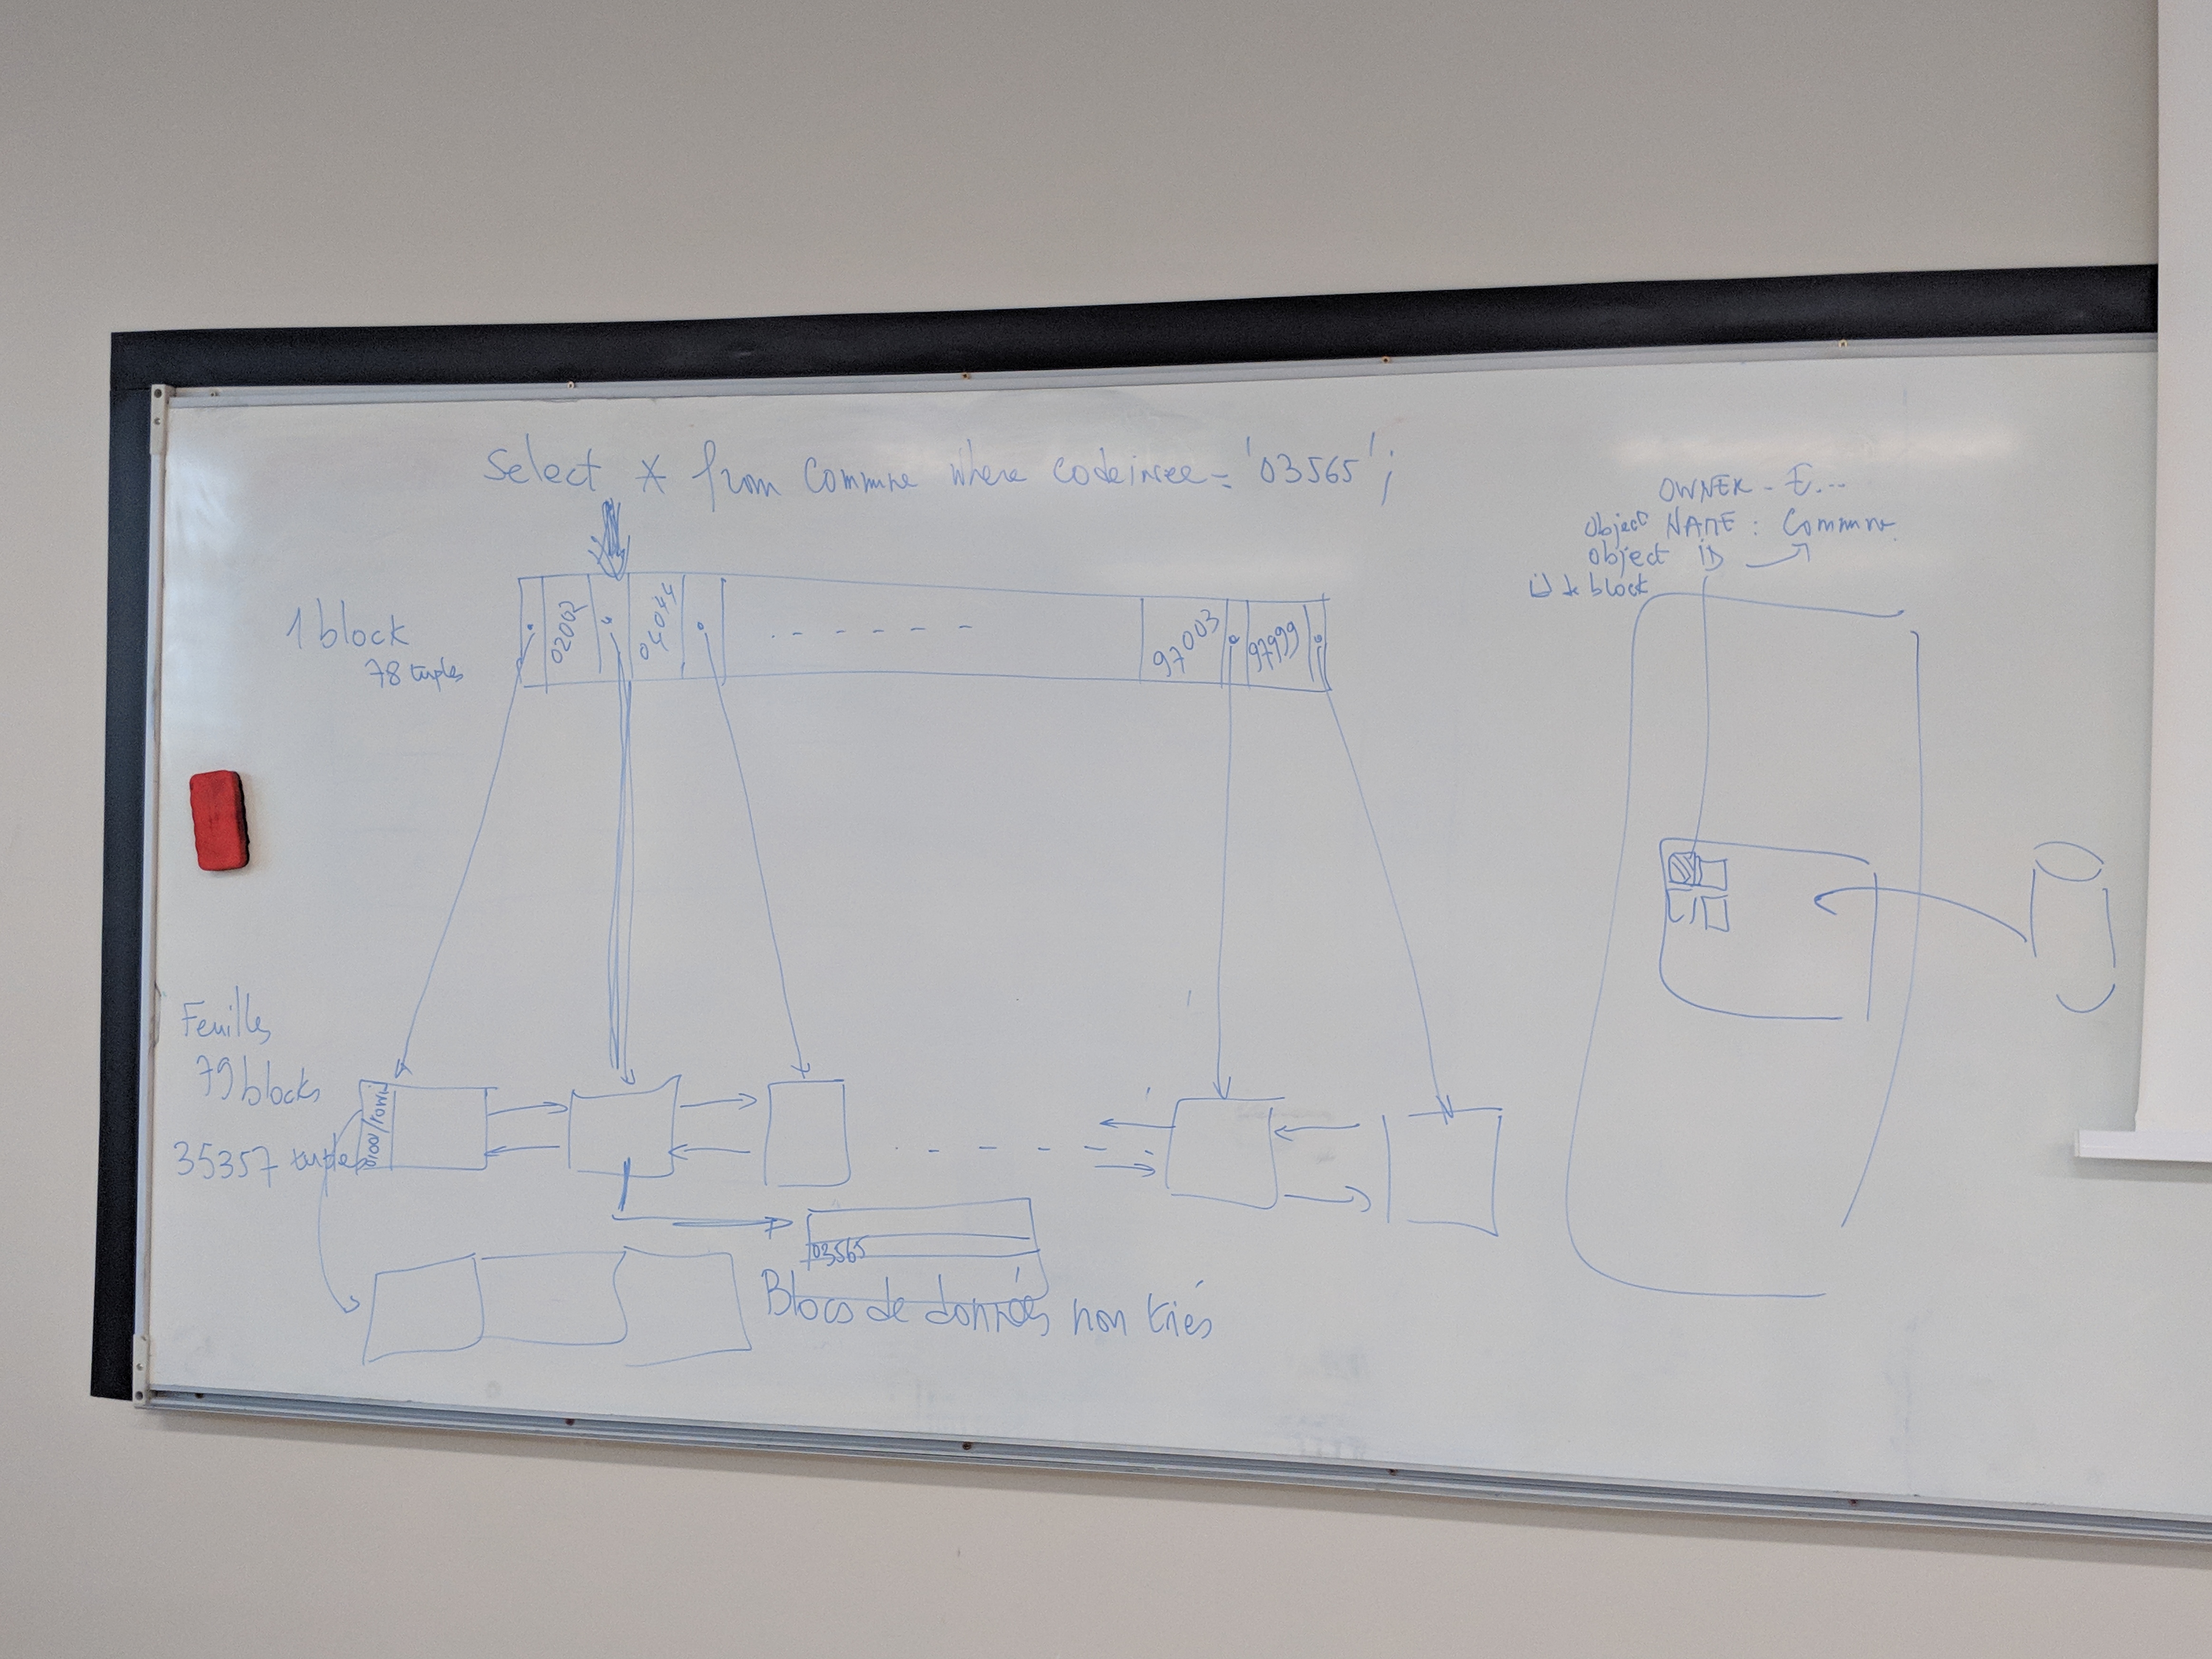 Select * from Commune where codeinsee = '03565';
OWNER - E...
Object NAME : Commune
object iD
id de block
1 block
78 tuples
02002
04044
97003
97999
Feuilles
79 blocks
35357 tuples
03565
Blocs de données non triés